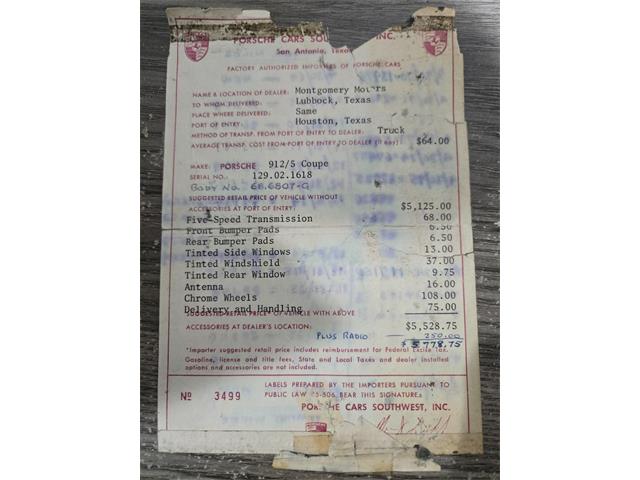 PORSCHE CARS SOUTHWEST, INC.
San Antonio, Texas
FACTORY AUTHORIZED IMPORTERS OF PORSCHE CARS
NAME & LOCATION OF DEALER: Montgomery Motors
TO WHOM DELIVERED: Lubbock, Texas
PLACE WHERE DELIVERED: Same
PORT OF ENTRY: Houston, Texas
METHOD OF TRANSP. FROM PORT OF ENTRY TO DEALER: Truck
AVERAGE TRANSP. COST FROM PORT OF ENTRY TO DEALER (if any): $64.00
MAKE: PORSCHE 912/5 Coupe
SERIAL NO.: 129.02.1618
BODY NO. 68.6807-G
SUGGESTED RETAIL PRICE OF VEHICLE WITHOUT
ACCESSORIES AT PORT OF ENTRY: $5,125.00
Five-Speed Transmission 68.00
Front Bumper Pads 6.50
Rear Bumper Pads 6.50
Tinted Side Windows 13.00
Tinted Windshield 37.00
Tinted Rear Window 9.75
Antenna 16.00
Chrome Wheels 108.00
Delivery and Handling 75.00
SUGGESTED RETAIL PRICE* OF VEHICLE WITH ABOVE
ACCESSORIES AT DEALER'S LOCATION: $5,528.75
PLUS RADIO 250.00
$5778.75
*Importer suggested retail price includes reimbursement for Federal Excise Tax.
Gasoline, license and title fees, State and Local Taxes and dealer installed
options and accessories are not included.
LABELS PREPARED BY THE IMPORTERS PURSUANT TO
No 3499 PUBLIC LAW 85-506 BEAR THIS SIGNATURE:
PORSCHE CARS SOUTHWEST, INC.